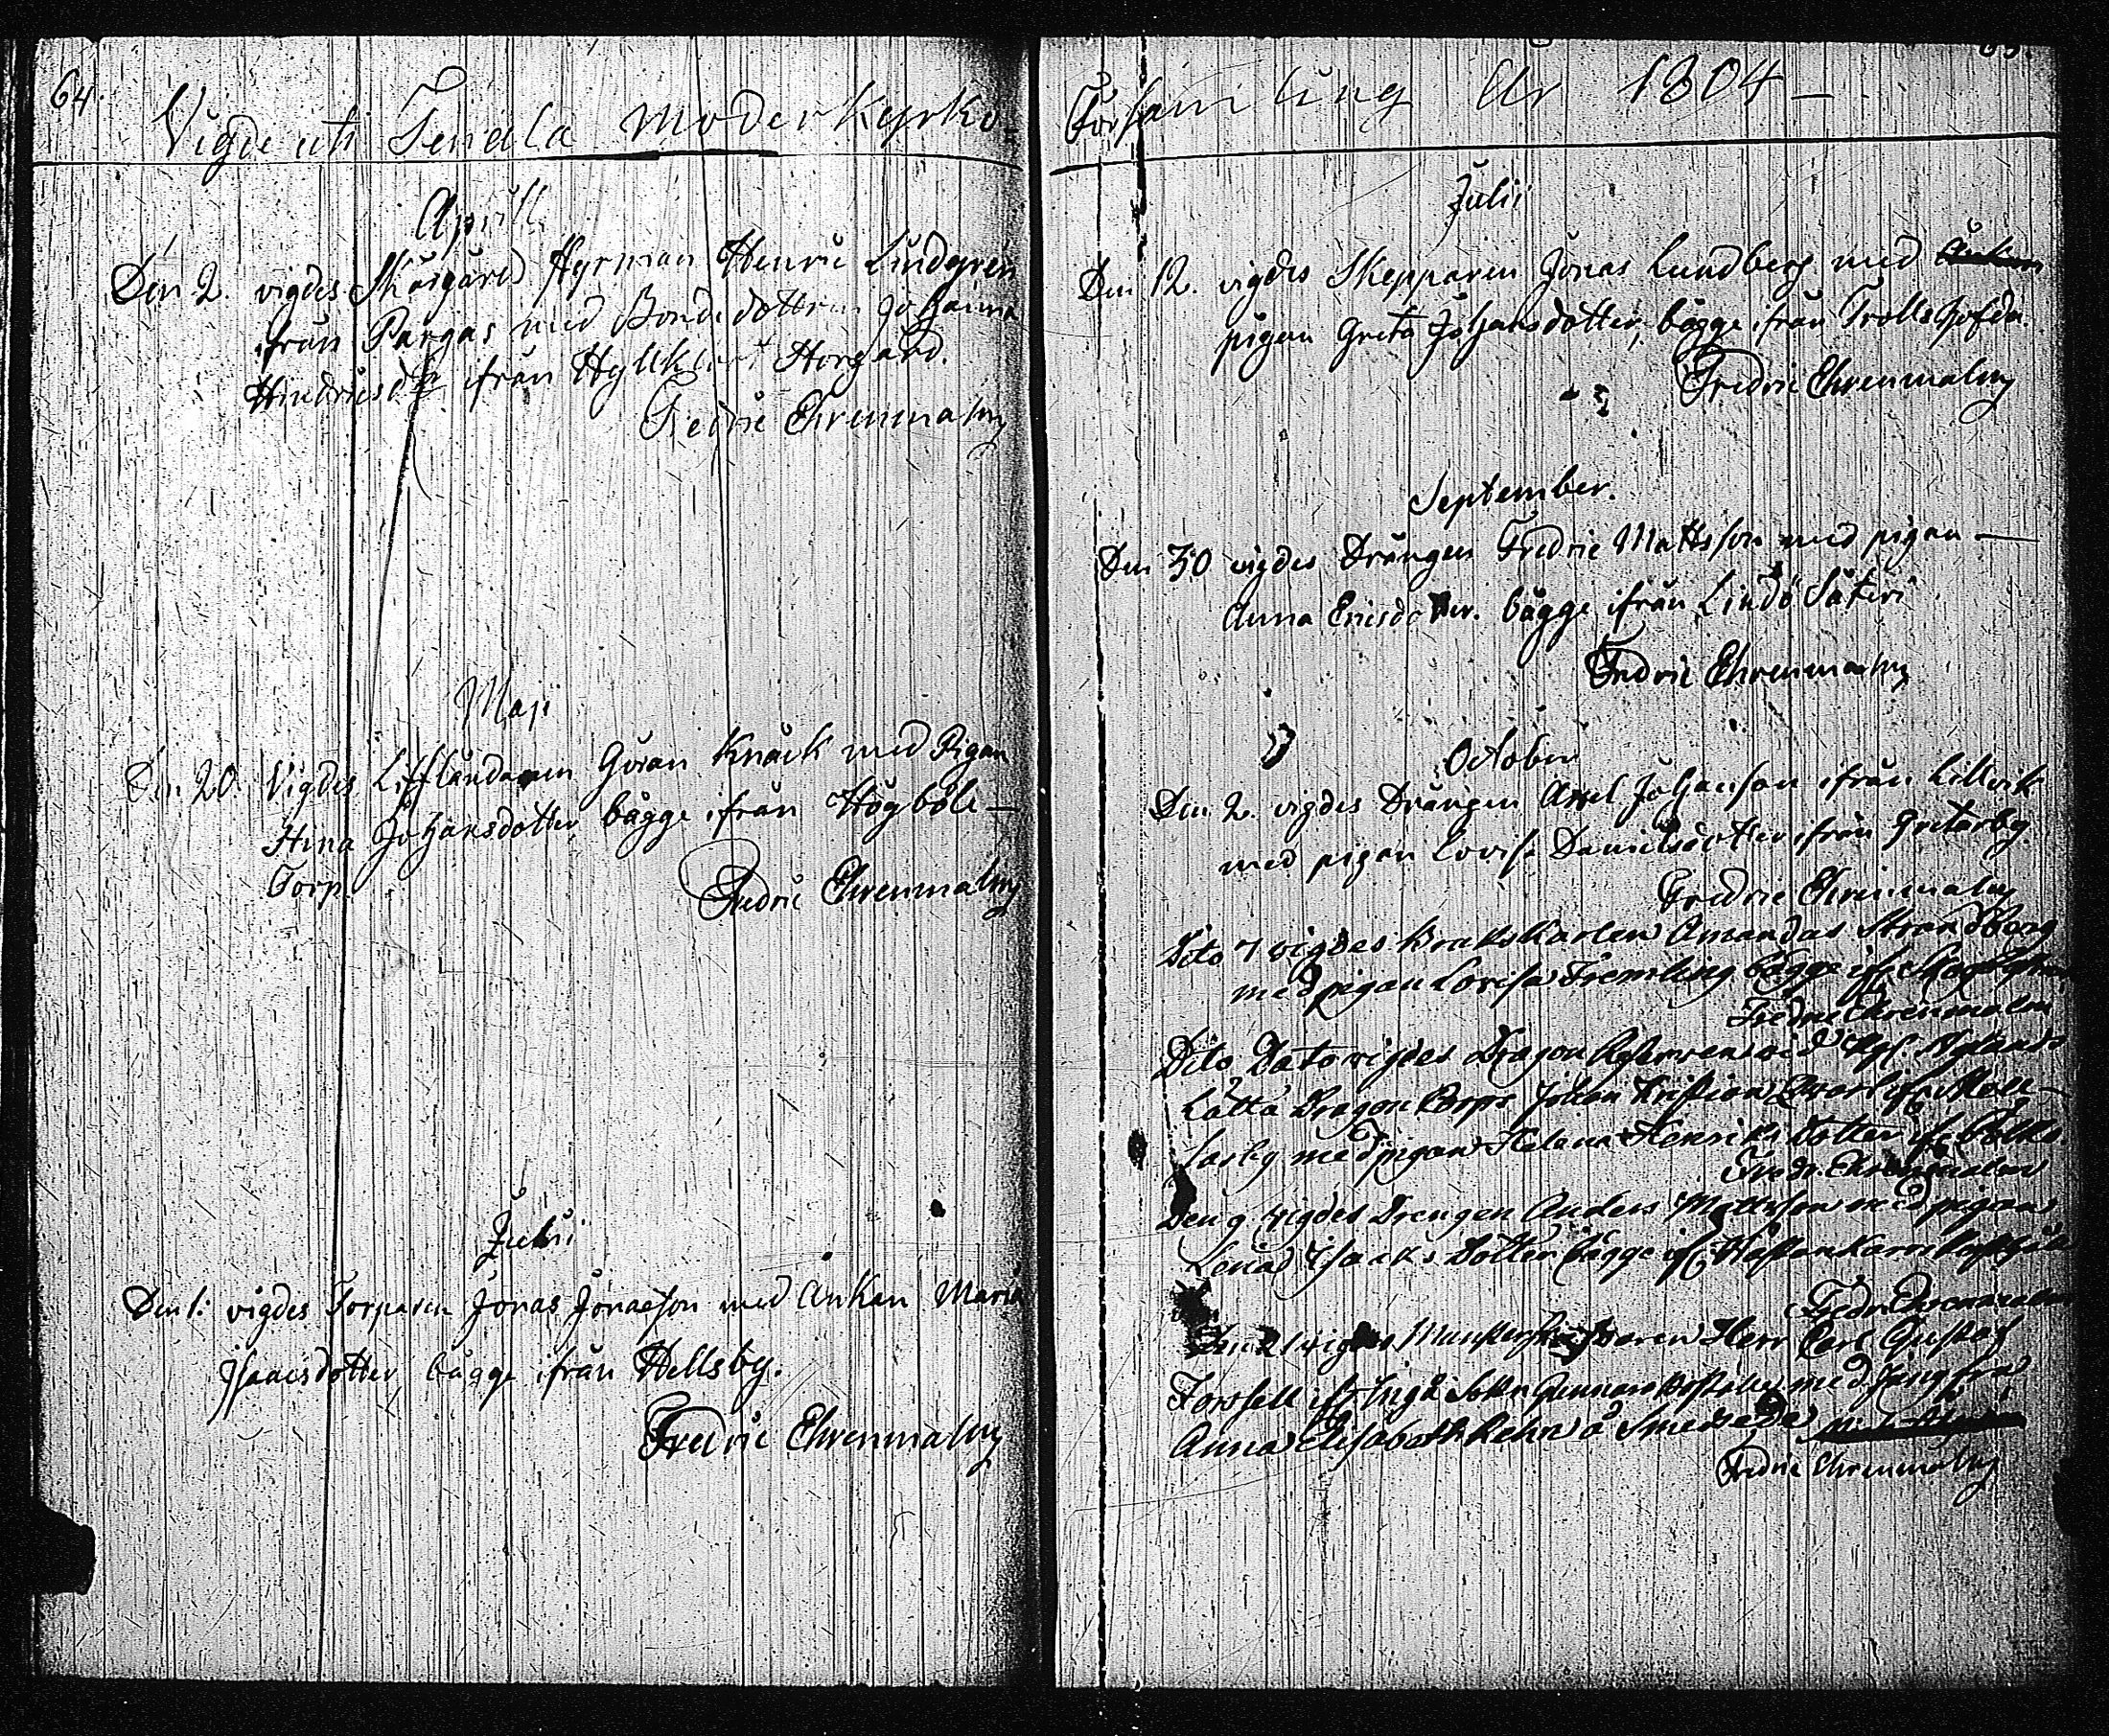 64.
Vigde uti Tenala Moderkyrko
Aprill
Den 2. vigdes Skärgårds Styrman Henric Lindgren
ifrån Pargas med Bondedottren Johanna
Hindricsdr ifrån Storgård.
Fredric Ehrenmalm
Maji
Den 20. Vigdes Lifländaren Göran Knack med Pigan
Stina Johansdotter, bägge ifrån Högböle
Torp.
Fredric Ehrenmalm
Julii
Den 1: vigdes Torparen Jonas Jonasson med Änkan Maria
Isaacsdotter, bägge ifrån Hellsby.
Fredric Ehrenmalm
Församling År 1804
Julii
Den 12. vigdes Skepparen Jonas Lundberg med
pigan Greta Johansdotter, bägge ifrån Trollshofda.
Fredric Ehrenmalm
September.
Den 30 vigdes Drängen Fredric Mattsson med pigan
Anna Ericsdotter. bägge ifrån Lindö Säteri
Fredric Ehrenmalm
October
Den 2. vigdes Drängen Axel Johansson ifrån Lillvik
med pigan Lovisa Danielsdotter ifrån Gretarby.
Fredric Ehrenmalm
Dito 7 vigdes Amandus Strandberg
med pigan Lovisa Fremling bägge ifr
Fredric Ehrenmalm
Dito Dato vigdes Dragon vid Kgl. Nylands
Lätta Dragon Corps Johan Kristian
med pigan Helena Henriks Dotter ifr
Fredr. Ehrenmalm
Den 9 vigdes Drengen Anders Mattsson med pigan
Lena Isacks Dotter bägge ifr
Fredr Ehrenmalm
Den 21 vigdes Herr Carl Gustaf
Forssell ifr Ingå Sokn med Jungfru
Anna Elisabeth Rehn å Smedsede
Fredric Ehrenmalm